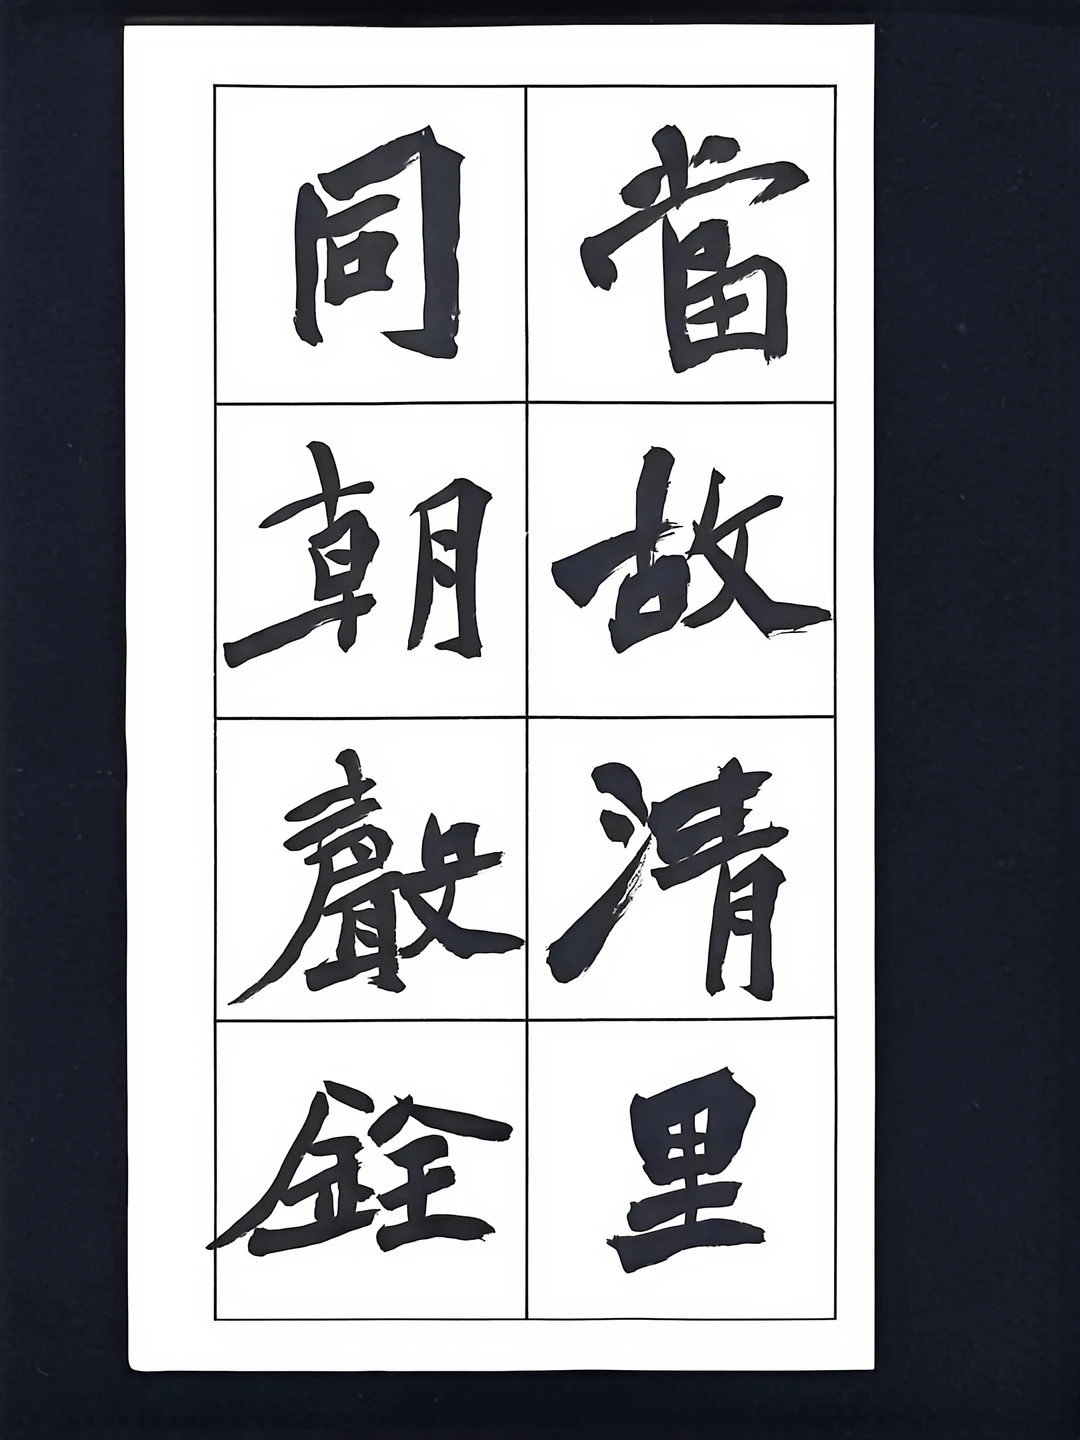 當故清里
同朝聲銓